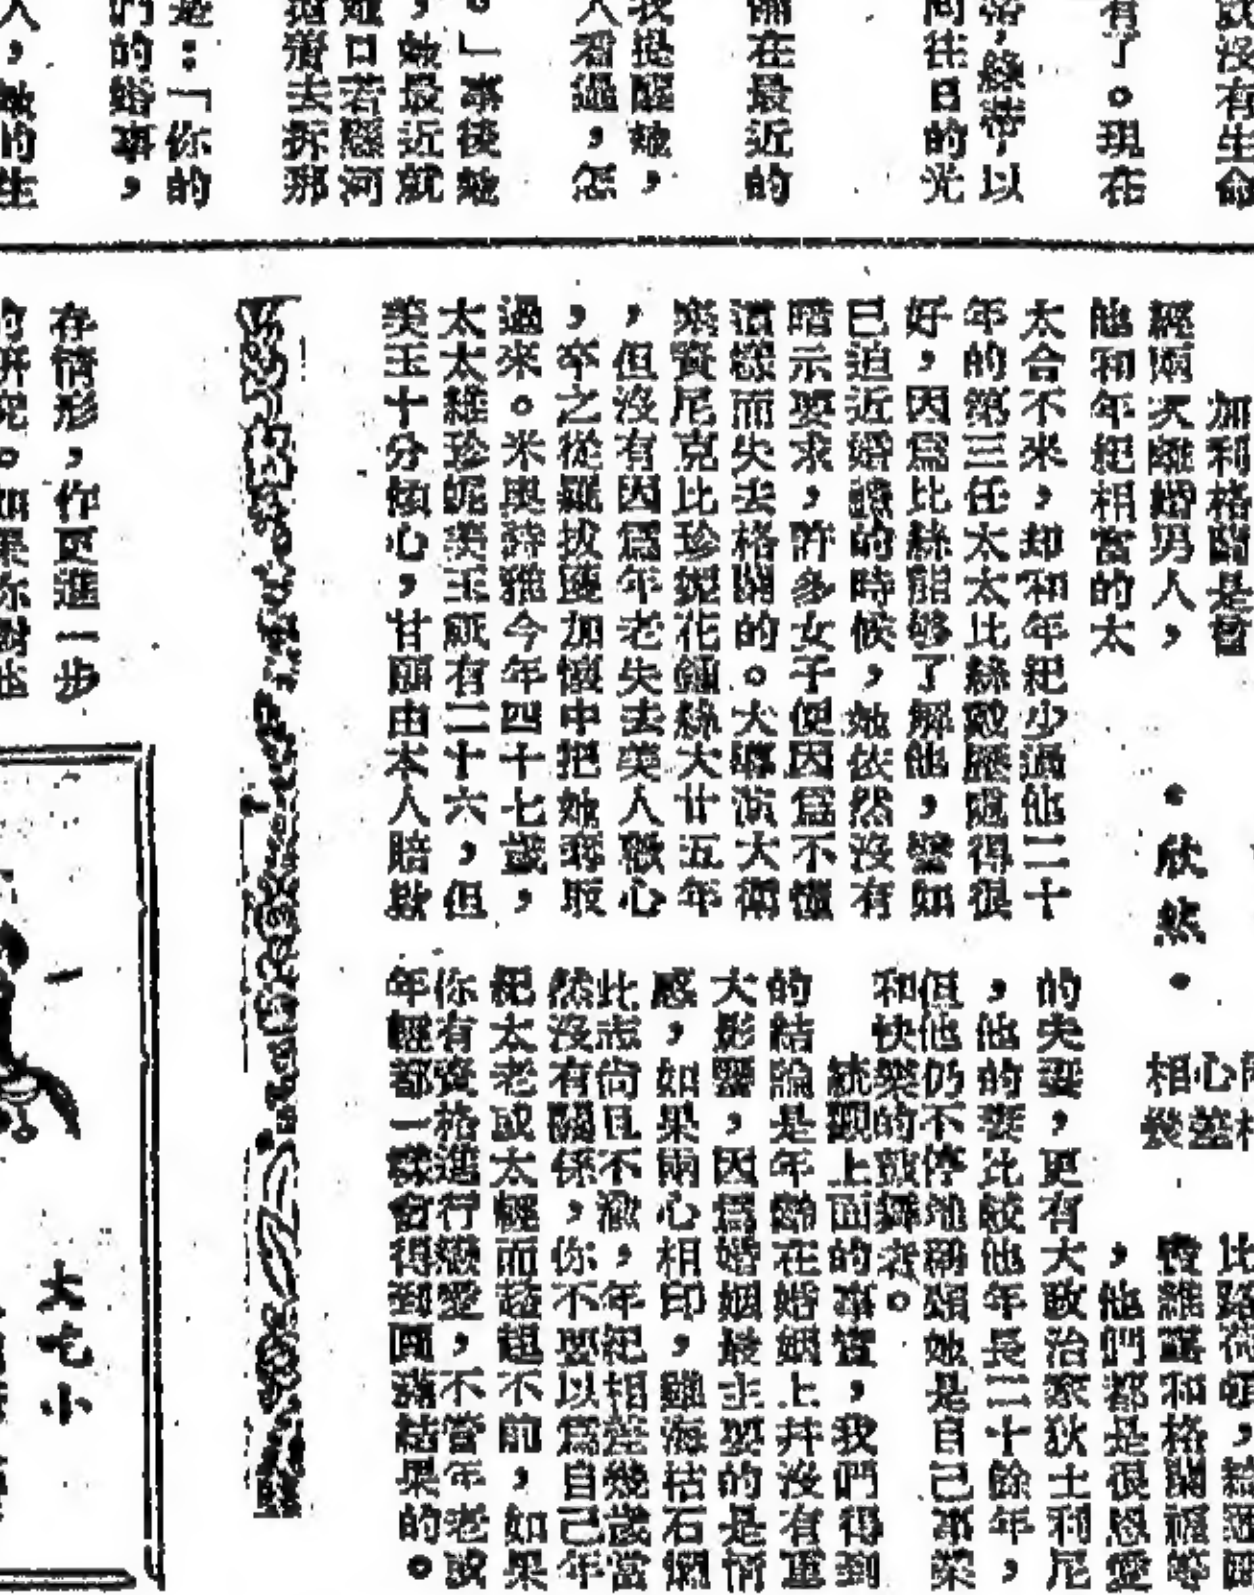 缺沒有生命
有了。現在
帶,絲帶,以
同往日的光
備在最近的
我提醒她,
人看過,怎
。」事後她
,她最近就
她口若懸河
搖着去拆那
是:「你的
們的婚事,
人,她的生
加利格蘭是曾
經兩次離婚男人,
他和年紀相當的太
太合不來,却和年紀少過他二十
年的第三任太太比絲戴歷處得很
好,因爲比絲能够了解他,譬如
已迫近婚譜的時候,她依然沒有
暗示要求,許多女子便因爲不懂
這樣而失去格蘭的。大導演大衛
樂賓尼克比珍妮花鍾絲大廿五年
,但沒有因爲年老失去美人歡心
,卒之從羅拔獲加懷中把她奪取
過來。米奧詩雅今年四十七歲,
太太維珍妮美玉祇有二十六,但
美玉十分傾心,甘願由本人賠欵
•欣然•
心
相
他們都是很恩愛
的夫妻,更有大政治家狄士利尼
,他的妻比較他年長二十餘年,
但他仍不停地稱頌她是自己事業
和快樂的鼓舞者。
統觀上面的事實,我們得到
的結論是年齡在婚姻上并沒有重
大影響,因爲婚姻最主要的是情
感,如果兩心相印,雖海枯石爛
此志尚且不渝,年紀相差幾歲當
然沒有關係,你不要以爲自己年
紀太老或太輕而趑趄不前,如果
你有資格進行戀愛,不管年老或
年輕都一樣會得到圓滿結果的。
存情形,作更進一步
的研究。如果你對
大屯小